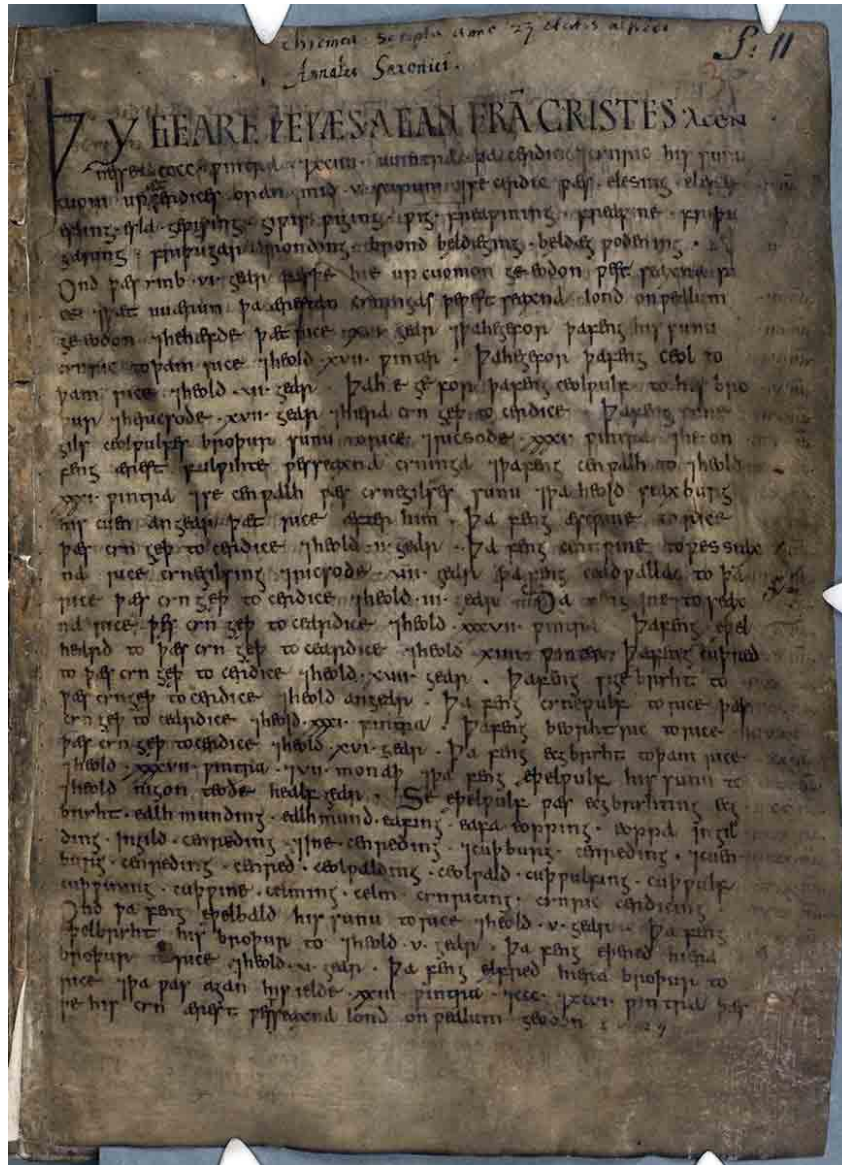 Annales Saxonici.
S: 11
ÞY GEARE ÞE ǷÆS AGAN FRÃ CRISTES ACEN
nesse .cccc. ƿintra ⁊xciiii uuintra þa cerdic ⁊cynric his sunu
cuom up æt cerdices oran mid .v. scipum ⁊se cerdic ƿæs elesing elesa
esling esla geƿising giƿis ƿiging ƿig freaƿining freaƿine friþu
garing friþugar bronding brond beldæging beldæg ƿodening
Ond þæs ymb .vi. gear þæs þe hie up cuomon ge eodon ƿest seaxna ri
ce ⁊þæt uuærun þa ærestan cyningas þe ƿest seaxna lond on ƿealum
ge eodon ⁊he hæfde þæt rice .xvi. gear ⁊þa he gefor þa feng his sunu
cynric to þam rice ⁊heold .xvii. ƿinter. Þa he gefor þa feng ceol to
þam rice ⁊heold .vii. gear. Þa he gefor þa feng ceolƿulf to his bro
þur ⁊he ricsode .xvii. gear ⁊hiera cyn gæþ to cerdice. Þa feng cyne
gils ceolƿulfes broþur sunu to rice ⁊ricsode .xxxi. ƿintra ⁊he on
feng ærest fulƿihte ƿesseaxna cyninga ⁊þa feng cenƿalh to ⁊heold
.xxxi. ƿintra ⁊se cenƿalh ƿæs cynegilses sunu ⁊þa heold seaxburg
his cuen an gear þæt rice æfter him. Þa feng æscƿine to rice
þæs cyn gæþ to cerdice ⁊heold .ii. gear. Þa feng centƿine to ƿesseax
na rice cynegilsing ⁊ricsode .vii. gear. Þa feng ceadƿalla to þam
rice þæs cyn gæþ to cerdice ⁊heold .iii. gear. Þa feng ine to seax
na rice þæs cyn gæþ to ceardice ⁊heold .xxxvii. ƿintra. Þa feng æþel
heard to þæs cyn gæþ to ceardice ⁊heold .xiiii. ƿinter. Þa feng cuþred
to þæs cyn gæþ to cerdice ⁊heold .xvii. gear. Þa feng sigebryht to
þæs cyn gæþ to cerdice ⁊heold an gear. Þa feng cyneƿulf to rice þæs
cyn gæþ to ceardice ⁊heold .xxxi. ƿintra. Þa feng beorhtric to rice
þæs cyn gæþ to cerdice ⁊heold .xvi. gear. Þa feng ecgbryht to þam rice
⁊heold .xxxvii. ƿintra .⁊vii. monaþ ⁊þa feng eþelƿulf his sunu to
⁊heold nigon teoðe healf gear. Se eþelƿulf ƿæs ecgbryhting ecg
bryht ealhmunding ealhmund eafing eafa eopping eoppa ingil
ding ingild cenreding ⁊ine cenreding ⁊cuþburg cenreding ⁊cuen
burg cenreding cenred ceolƿalding ceolƿald cuþƿulfing cuþƿulf
cuþƿining cuþƿine celming celm cynricing cynric cerdicing
Ond þa feng eþelbald his sunu to rice ⁊heold .v. gear. Þa feng
eþelbryht his broþur to ⁊heold .v. gear. Þa feng eþered hiera
broþur to rice ⁊heold .v. gear. Þa feng elfred hiera broþur to
rice ⁊þa ƿæs agan his ielde .xxiii. ƿintra ⁊ccc. ⁊xcvi. ƿintra þæs
þe his cyn ærest ƿesseaxna lond on ƿealum geeodon